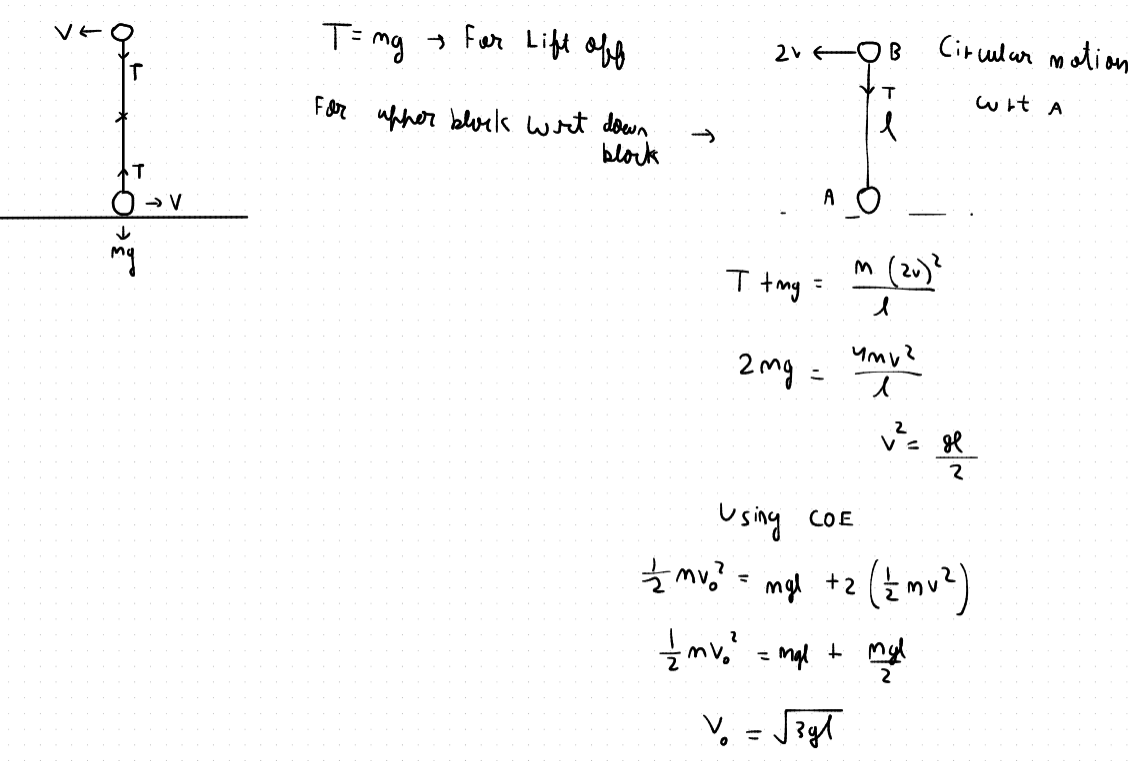 V ←
T
T
→ V
mg
T = mg → For Lift off
For upper block wrt down
block →
2v ← B
T
l
A
Circular motion
wrt A
T + mg = m (2v)² / l
2mg = 4mv² / l
v² = gl / 2
Using COE
1/2 mv₀² = mgl + 2 (1/2 mv²)
1/2 mv₀² = mgl + mgl/2
V₀ = √3gl